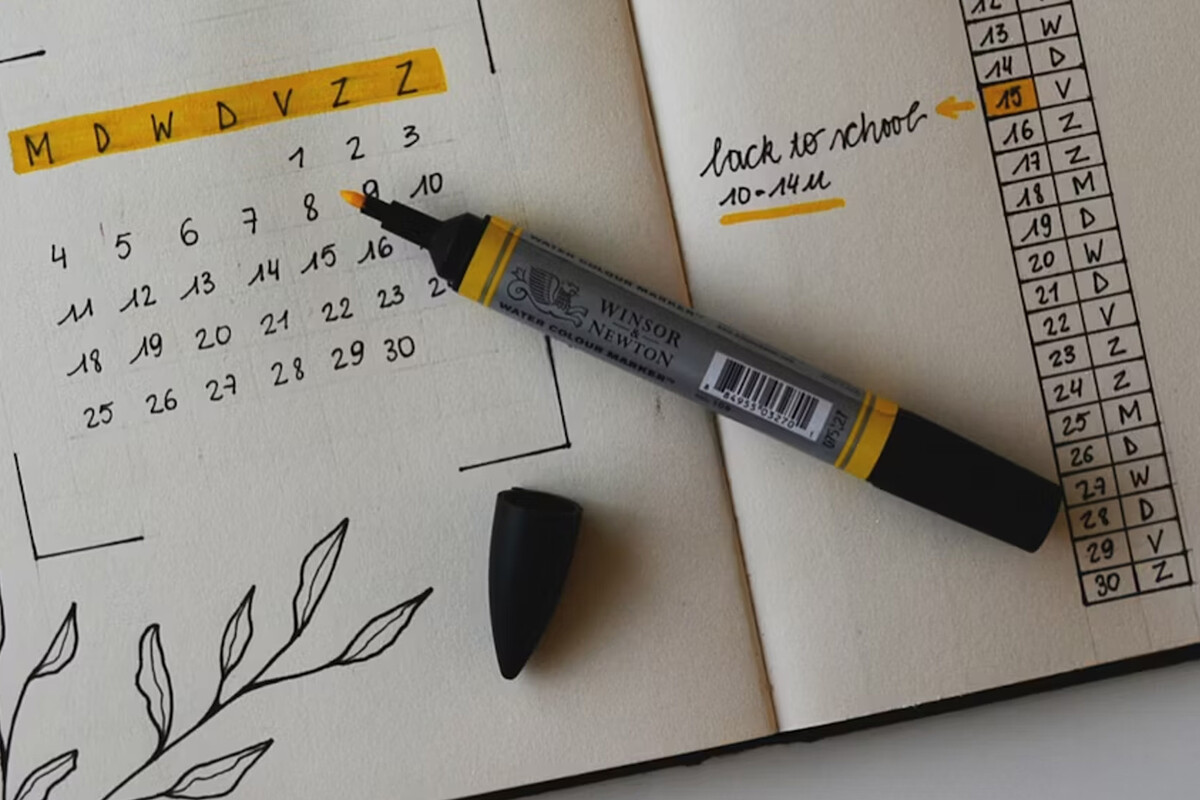 M D W D V Z Z
1 2 3
4 5 6 7 8 9 10
11 12 13 14 15 16
18 19 20 21 22 23
25 26 27 28 29 30
WATER COLOUR MARKER™
WINSOR
&
NEWTON
WATER COLOUR MARKER™
back to school
10-14u
12
13 W
14 D
15 V
16 Z
17 Z
18 M
19 D
20 W
21 D
22 V
23 Z
24 Z
25 M
26 D
27 W
28 D
29 V
30 Z